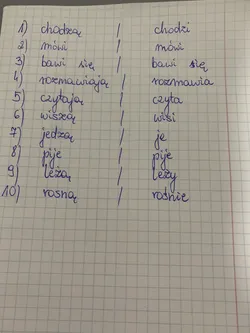 1) chodzą / chodzi
2) mówi / mówi
3) bawi się / bawi się
4) rozmawiają / rozmawia
5) czytają / czyta
6) wiszą / wisi
7) jedzą / je
8) pije / pije
9) leżą / leży
10) rosną / rośnie